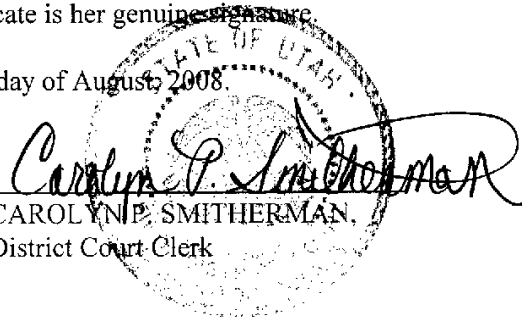 cate is her genuine signature.
STATE OF UTAH
day of August, 2008.
Carolyn P. Smitherman
CAROLYN P. SMITHERMAN,
District Court Clerk